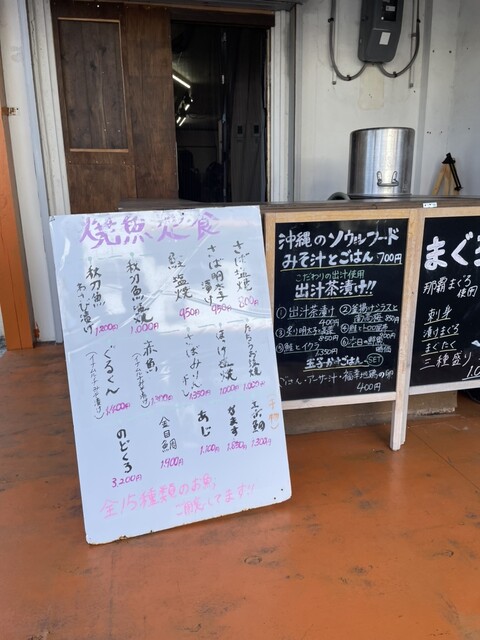 焼魚定食
さば塩焼 800円
さば明太子漬け 950円
鮭塩焼 950円
秋刀魚塩焼 1,000円
秋刀魚
1,200円
赤魚
さばみりん
1,350円
ほっけ塩焼 1,000円
ぐるくん
1,400円
金目鯛 1,900円
あじ 1,100円
なます
1,300円
のどくろ 3,200円
全15種類のお魚
ご用意してます!!
沖縄のソウルフード
みそ汁とごはん 700円
こだわりの出汁使用
出汁茶漬け!!
①出汁茶漬け
②釜揚げシラスと
850円
④鮭と
850円
⑤鮭とイクラ
1,350円
⑥今日の
玉子かけごはんSET
ごはん・アーサ汁・
の卵
400円
まぐろ
那覇まぐろ
使用
刺身
漬けまぐろ
まぐたく
三種盛り